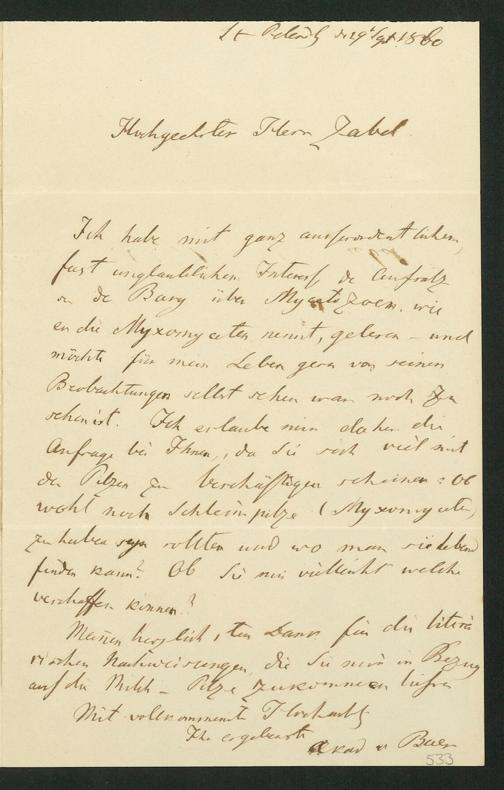 St Petersb. d 29 Sept. 1860
Hochgeehrter Herr Zabel.
Ich habe mit ganz ausserordentlichem,
fast unglaublichem Interess de Aufsatz
von de Bary über Mycetozoen, wie
er die Myxomyceten nennt, gelesen – und
möchte für mein Leben gern von seinen
Beobachtungen selbst sehen was noch zu
sehen ist. Ich erlaube mir daher die
Anfrage bei Ihnen, da Sie sich viel mit
den Pilzen zu beschäftigen scheinen: Ob
wohl noch Schleimpilze (Myxomyceten)
zu haben seyn sollten und wo man sie lebend
finden kann? Ob Sie mir vielleicht welche
verschaffen können?
Meinen herzlichsten Dank für die literä
rischen Nachweisungen, die Sie mir in Bezug
auf die Milch-Pilze zukommen liessen
Mit vollkommenste Hochacht
Ihr ergebenste
Akad v Baer
533